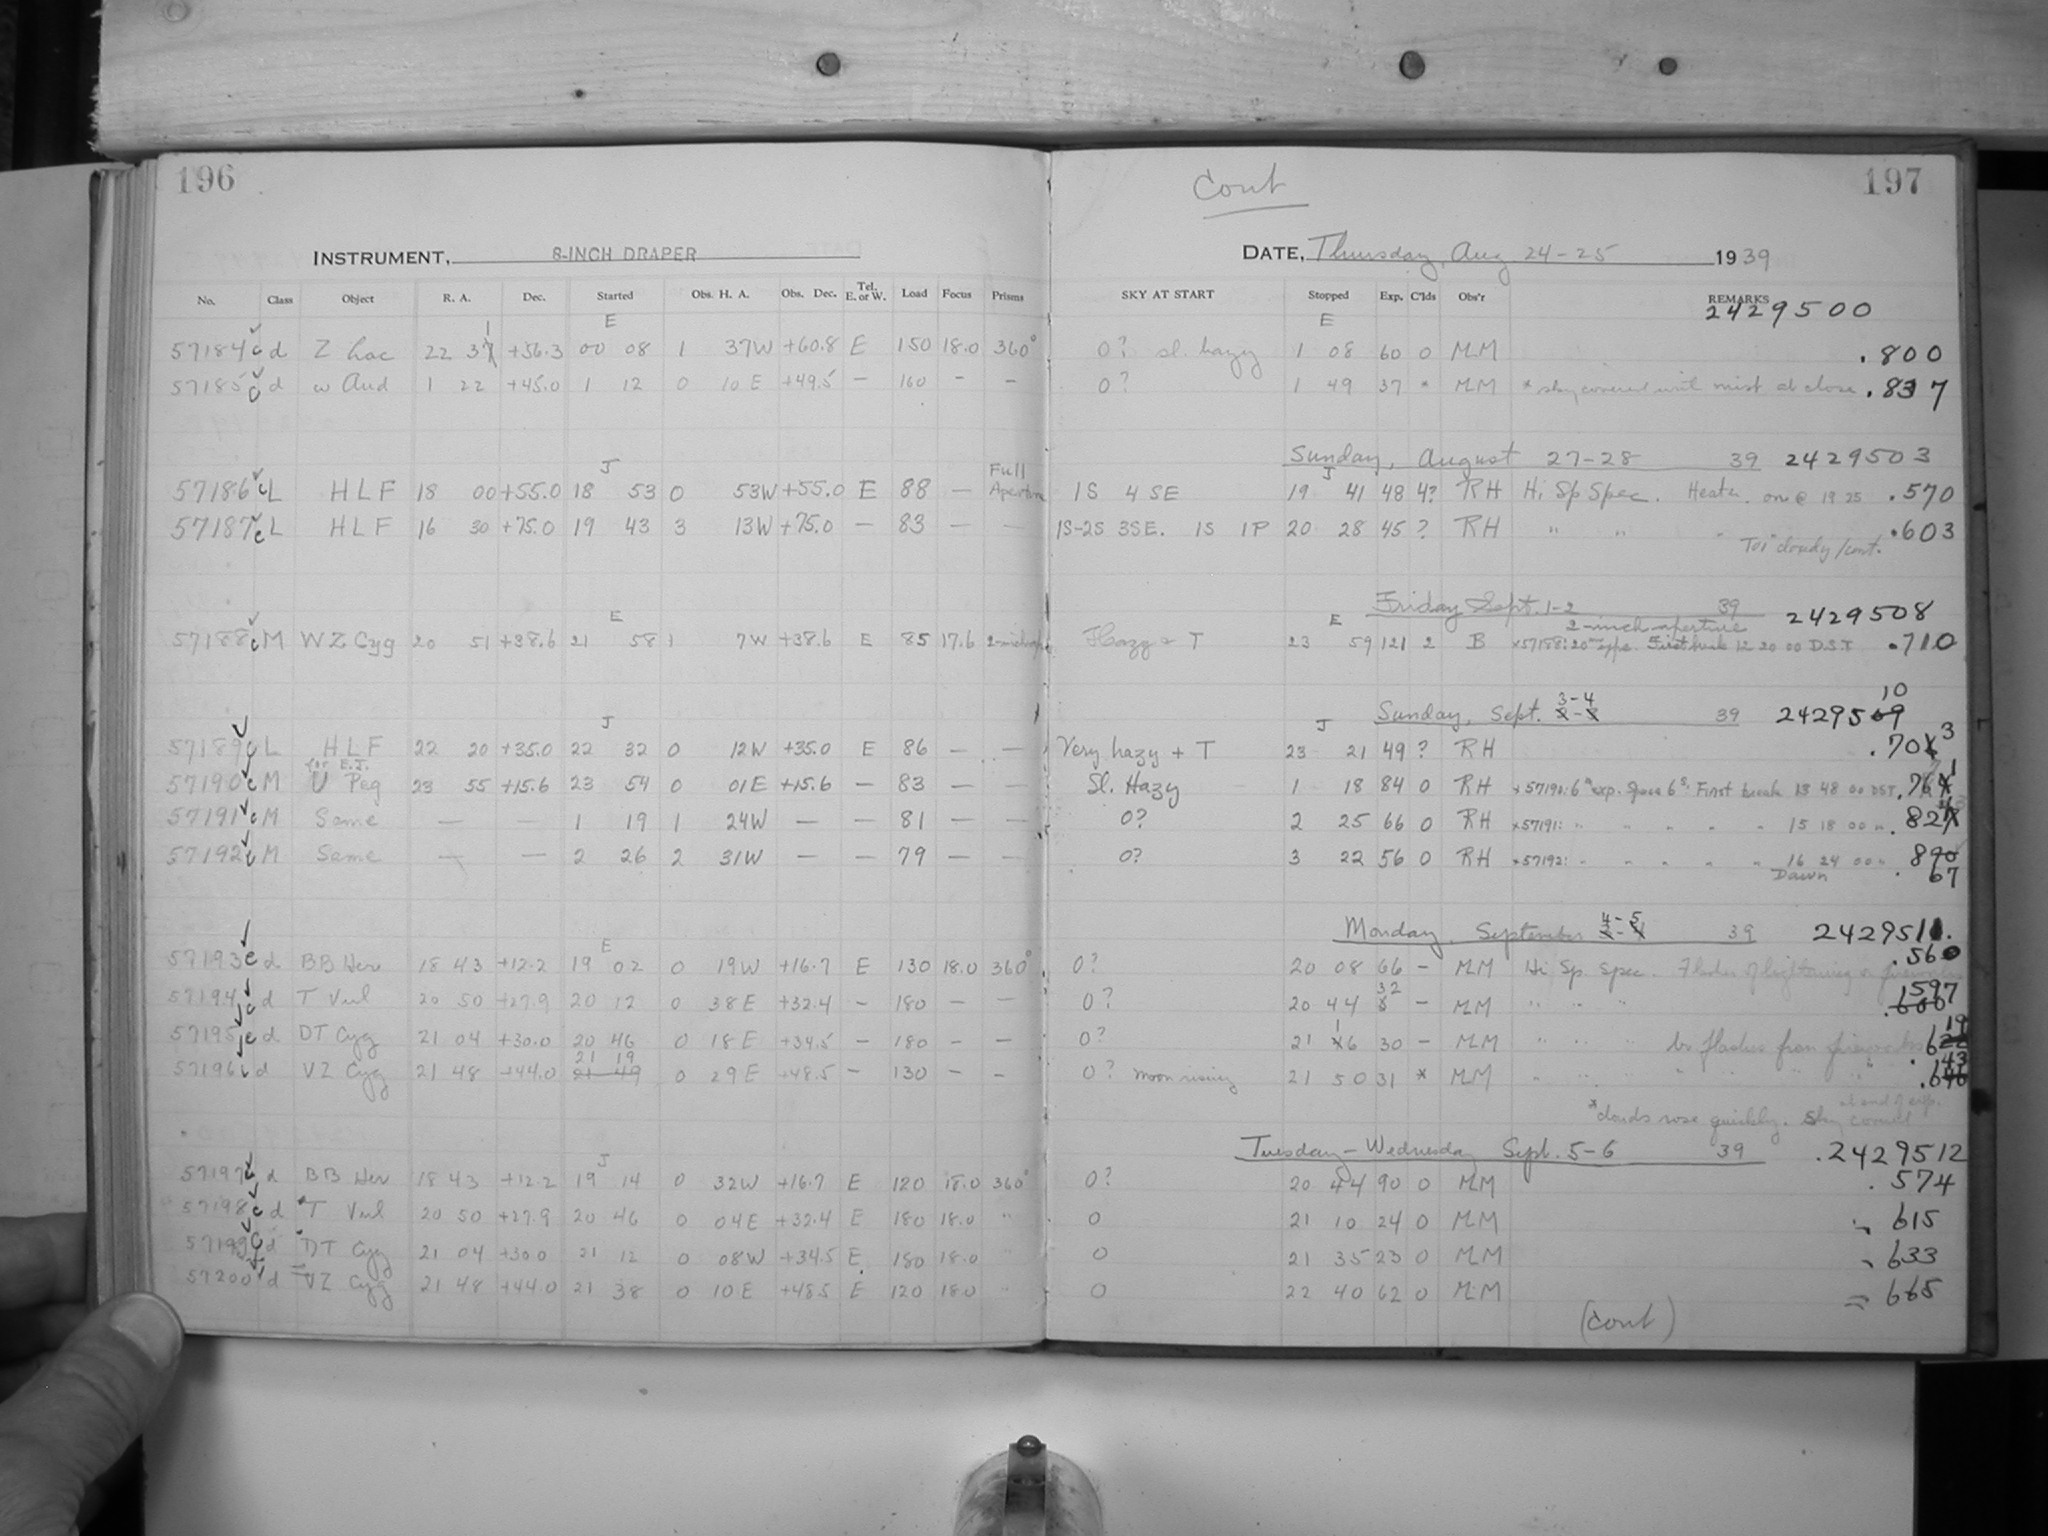 196
INSTRUMENT, 8-INCH DRAPER
No. Class Object R. A. Dec. Started Obs. H. A. Obs. Dec. Tel. E. or W. Load Focus Prisms
E
57184 c d Z Lac 22 31 +56.3 00 08 1 37W +60.8 E 150 18.0 360°
57185 c d w And 1 22 +45.0 1 12 0 10 E +49.5 — 160 — —
J Full
57186 c L HLF 18 00 +55.0 18 53 0 53W +55.0 E 88 — Aperture
57187 c L HLF 16 30 +75.0 19 43 3 13W +75.0 — 83 — —
E
57188 c M WZ Cyg 20 51 +38.6 21 58 1 7W +38.6 E 85 17.6 2-inch
J
57189 c L HLF 22 20 +35.0 22 32 0 12W +35.0 E 86 — —
for E.J.
57190 c M U Peg 23 55 +15.6 23 54 0 01E +15.6 — 83 — —
57191 c M Same — — 1 19 1 24W — — 81 — —
57192 c M Same — — 2 26 2 31W — — 79 — —
E
57193 c d BB Her 18 43 +12.2 19 02 0 19W +16.7 E 130 18.0 360°
57194 c d T Vul 20 50 +27.9 20 12 0 38E +32.4 — 180 — —
57195 c d DT Cyg 21 04 +30.0 20 46 0 18E +34.5 — 180 — —
21 19
57196 c d VZ Cyg 21 48 +44.0 21 49 0 29E +48.5 — 130 — —
J
57197 c d BB Her 18 43 +12.2 19 14 0 32W +16.7 E 120 18.0 360°
57198 c d T Vul 20 50 +27.9 20 46 0 04E +32.4 E 180 18.0 "
57199 c d DT Cyg 21 04 +30.0 21 12 0 08W +34.5 E 180 18.0 "
57200 c d VZ Cyg 21 48 +44.0 21 38 0 10E +48.5 E 120 18.0 "
Cont
197
DATE, Thursday, Aug 24-25 1939
SKY AT START Stopped Exp. C'lds Obs'r REMARKS
E 2429500
0? sl. hazy 1 08 60 0 MM .800
0? 1 49 37 * MM * sky covered with mist at close .837
Sunday, August 27-28 39 2429503
J
1S 4 SE 19 41 48 4? RH Hi Sp Spec. Heater on @ 19 25 .570
1S-2S 3SE. 1S 1P 20 28 45 ? RH " " " .603
Too cloudy / cont.
Friday Sept. 1-2 39 2429508
E 2-inch aperture
Hazy + T 23 59 121 2 B First break 12 20 00 D.S.T .710
3-4 10
Sunday, Sept. 2-3 39 2429509
J
Very hazy + T 23 21 49 ? RH .703
Sl. Hazy 1 18 84 0 RH *57190: 6m exp. Space 6s. First break 13 48 00 DST. .761
0? 2 25 66 0 RH *57191: " " " " " 15 18 00 " .82
0? 3 22 56 0 RH *57192: " " " " " 16 24 00 " .890
Dawn .67
4-5
Monday, September 3-4 39 2429511.
0? 20 08 66 — MM Hi Sp. Spec. Flashes of lightning & fireworks .560
32
0? 20 44 MM " " " .597 .600
0? 21 16 30 — MM " " " by flashes from fireworks .619
0? moon rising 21 50 31 * MM " " " " " " " .643
at end of exp.
* clouds rose quickly. Sky covered
Tuesday-Wednesday Sept. 5-6 39 .2429512
0? 20 44 90 0 MM .574
0 21 10 24 0 MM 615
0 21 35 23 0 MM 633
0 22 40 62 0 MM 665
(cont)